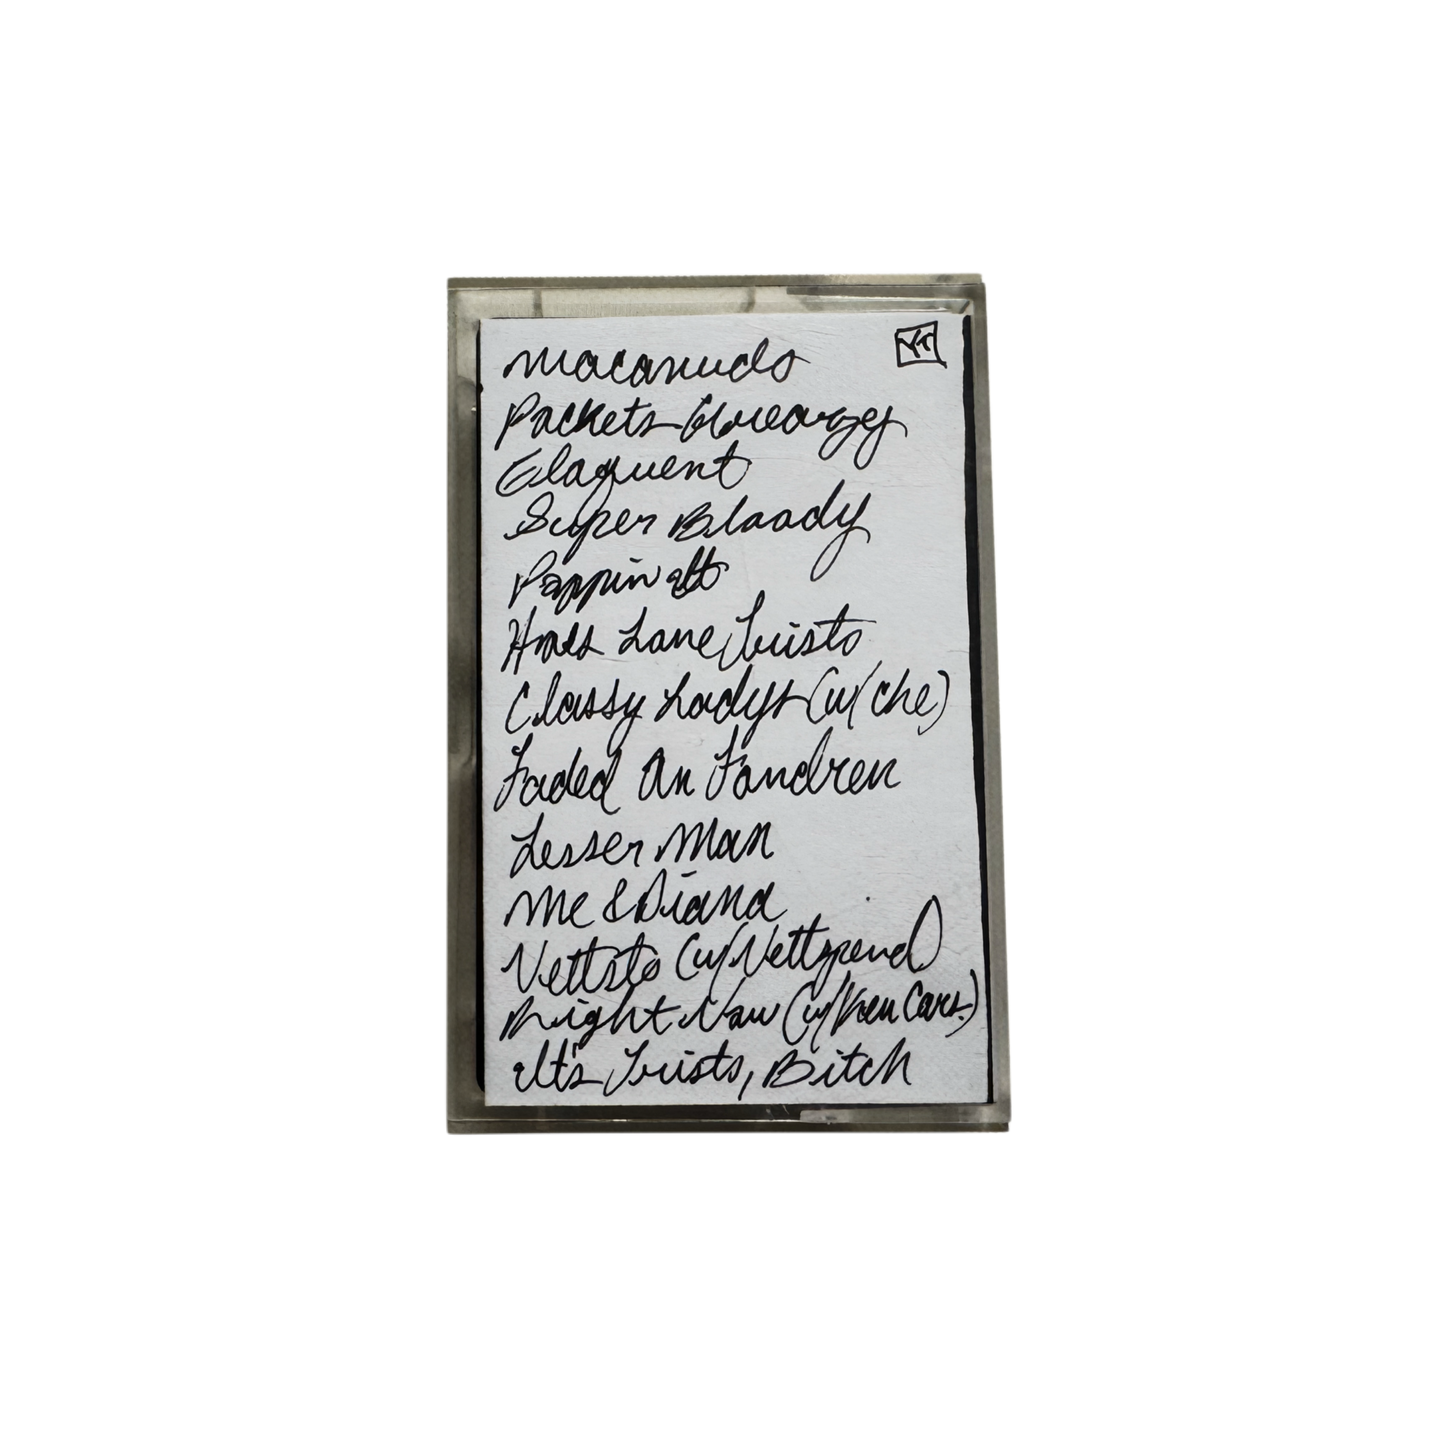 Macanudo
Packets
Eloquent
Super Bloody
Poppin It
Lane Twisto
Classy Ladys (w/ Che)
Faded On Fondren
Lesser Man
Me & Diana
Vettsto (w/ Nettspend)
Right Now (w/ Ken Cars.)
It's Twisto, Bitch